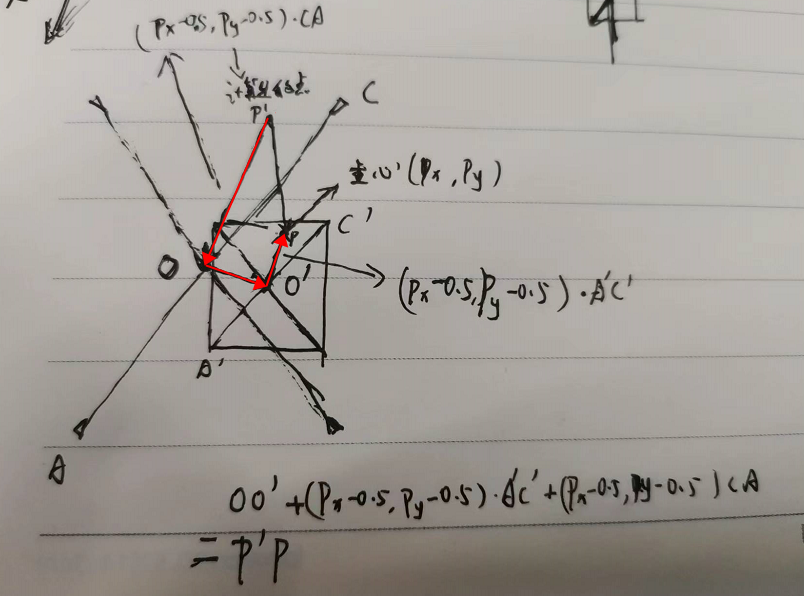 (Px-0.5, Py-0.5)·CA
P'
C
(Px, Py)
C'
P
O
O'
(Px-0.5, Py-0.5)·A'C'
A'
A
OO'+(Px-0.5, Py-0.5)·A'C'+(Px-0.5, Py-0.5)CA
=P'P